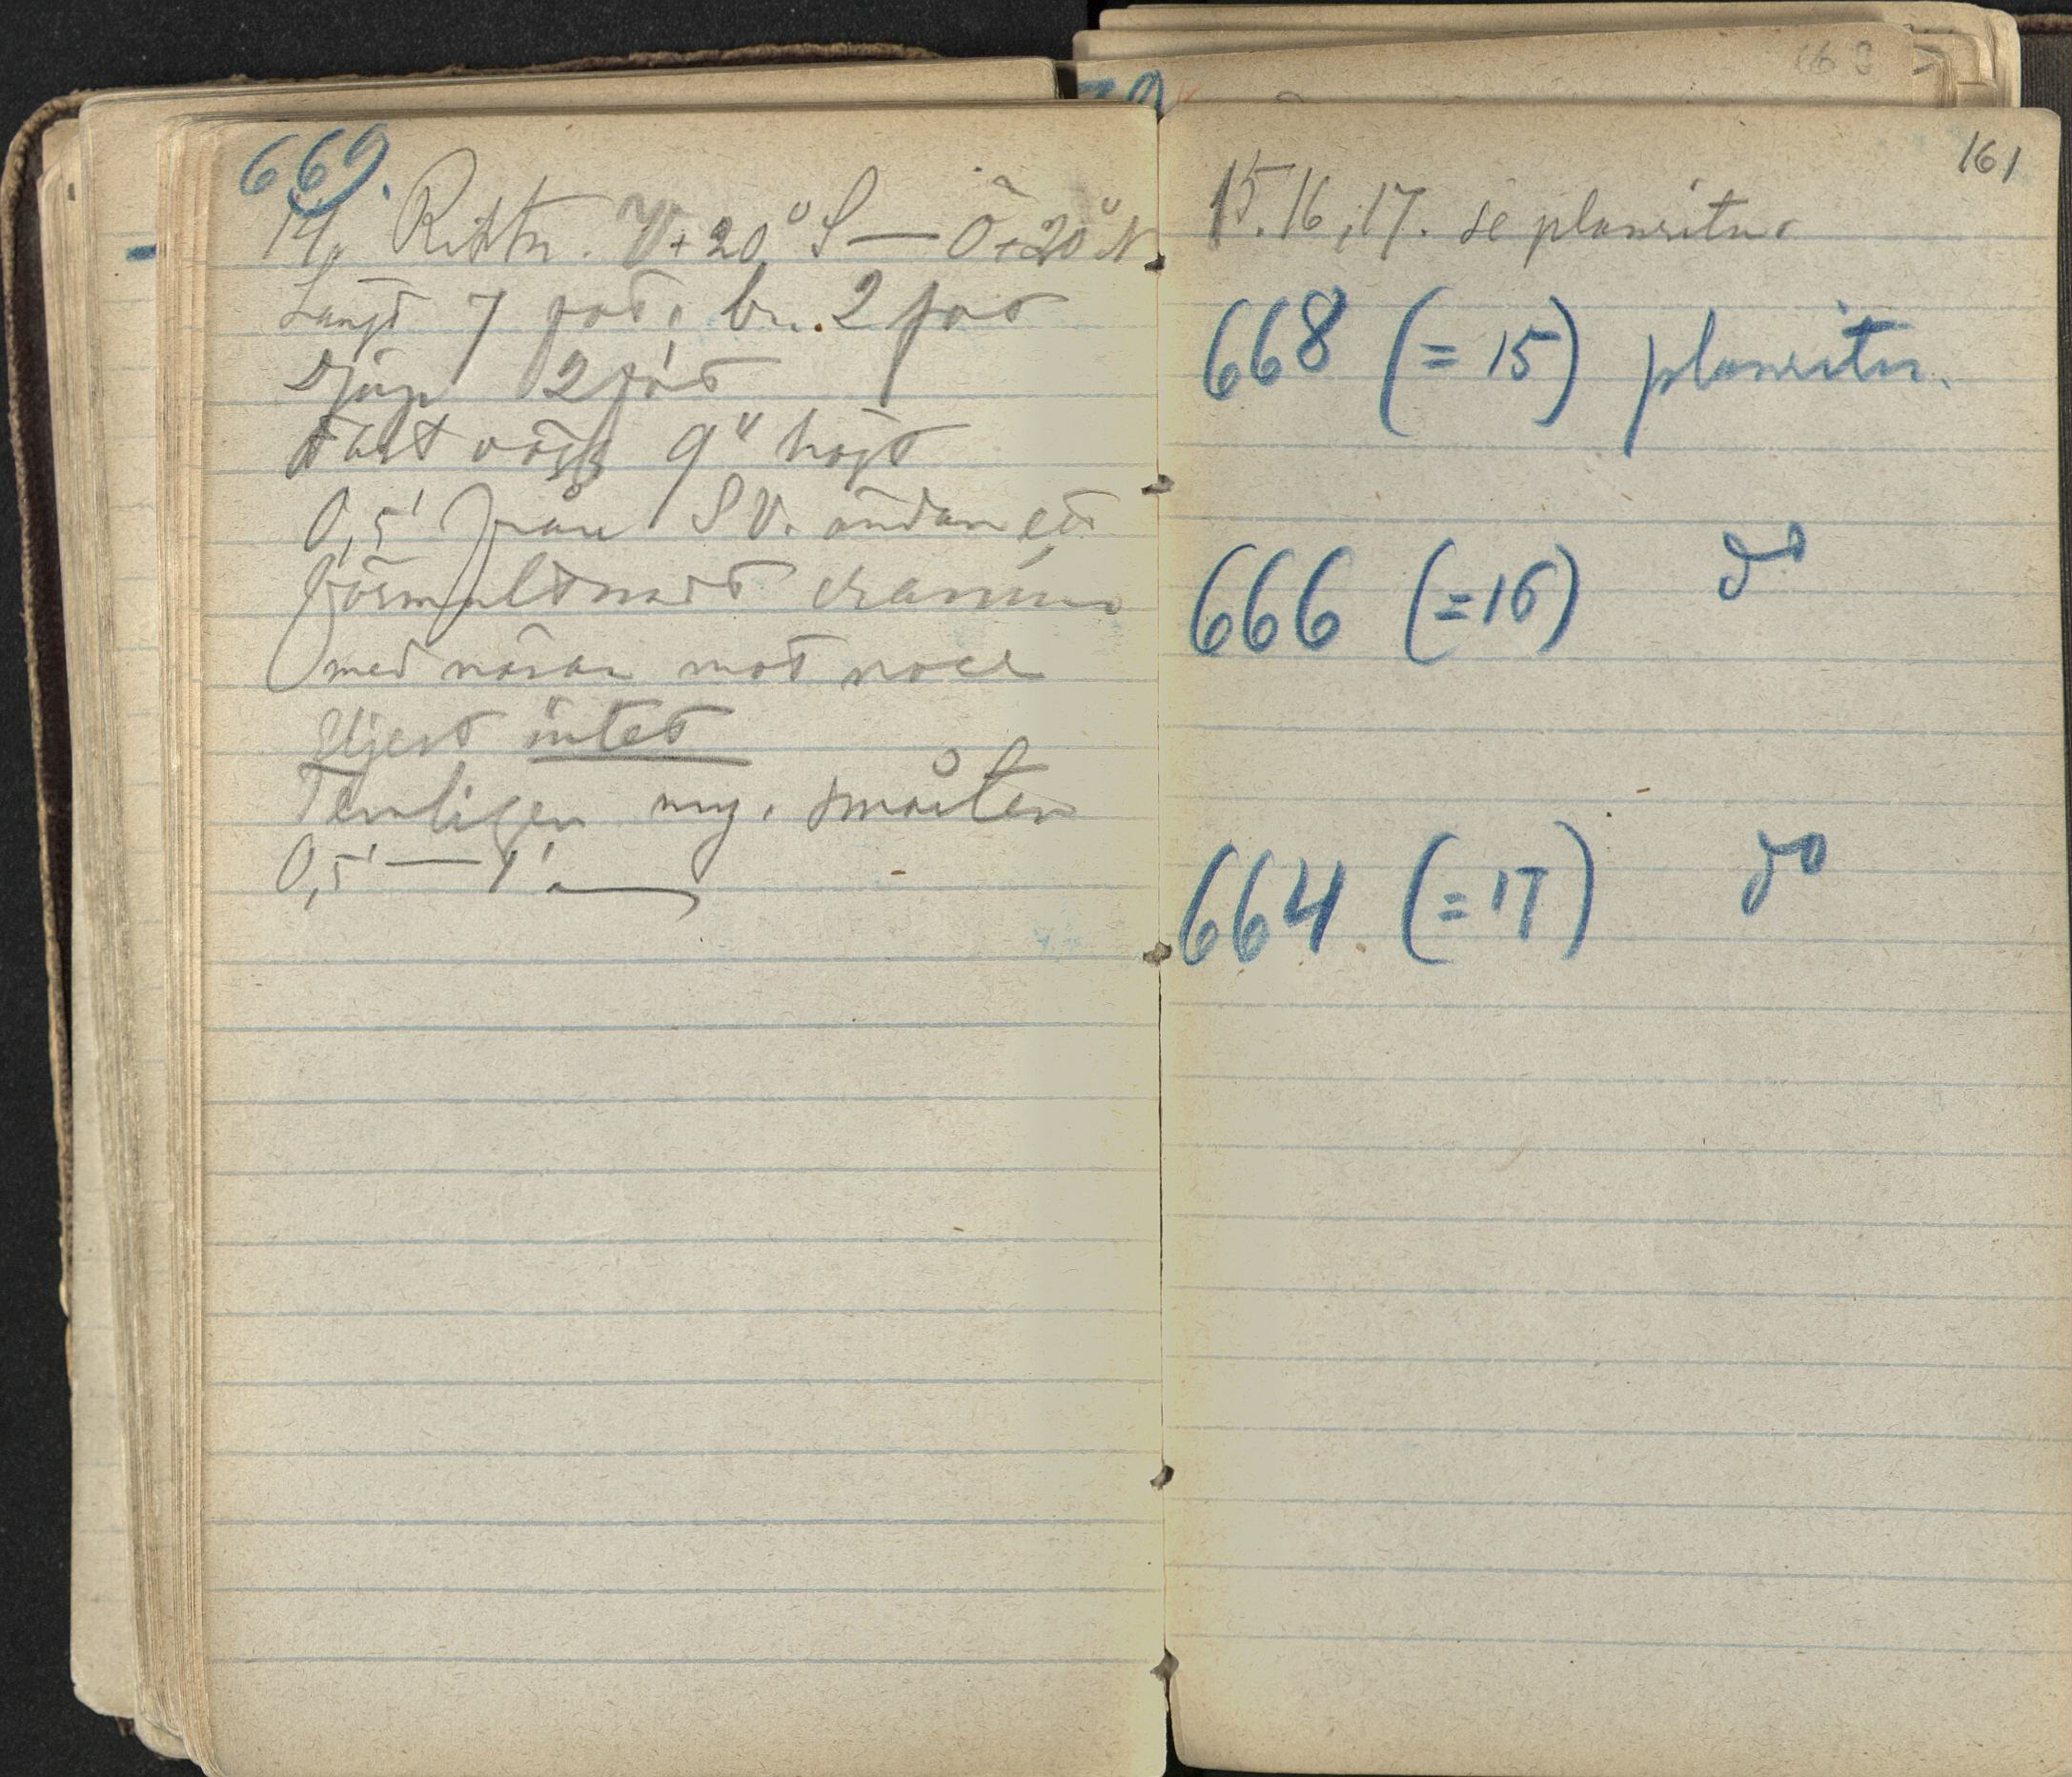 669.
14, Riktn. V+20° S — Ö+20° N.
Längd 7 fot, br. 2 fot
Djup 2 fot
9" högt
0,5' från SV. ändan ett
förmultnadt cranium
med näsan mot norr
Eljest intet
Temligen my. småsten
0,5' — 1'.
161
15. 16, 17. se planritn.
668 (= 15) planritn.
666 (= 16) do
664 (= 17) do